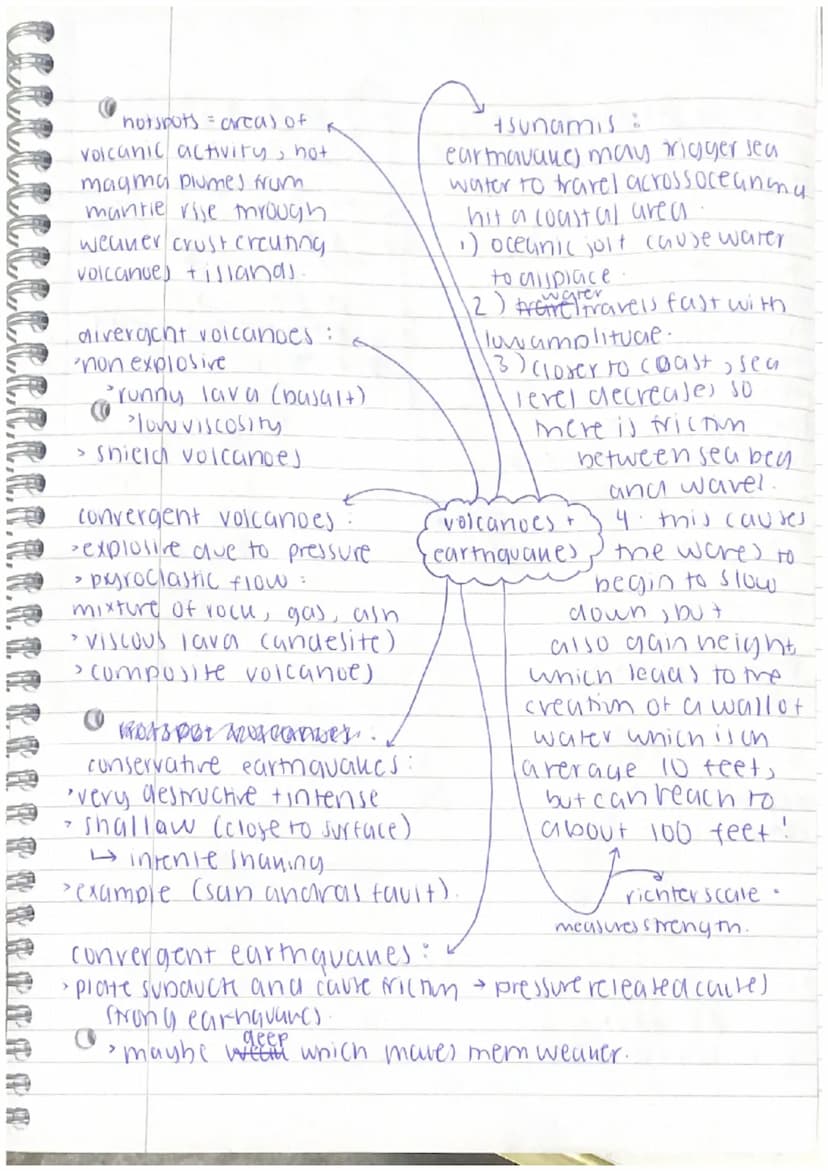 hotspots = areas of
volcanic activity, hot
magma plumes from
mantle rise through
weaker crust creating
volcanoes + islands.
divergent volcanoes :
›non explosive
›runny lava (basalt)
›low viscosity
› shield volcanoes
convergent volcanoes :
›explosive due to pressure
› pyroclastic flow :
mixture of rock, gas, ash
› viscous lava (andesite)
› composite volcanoes
conservative earthquakes :
›very destructive + intense
› shallow (close to surface)
↳ intense shaking
›example (san andras fault).
convergent earthquakes :
› plate subduct and cause friction → pressure released causes
strong earhquakes.
› maybe deep which makes them weaker.
volcanoes +
earthquakes
tsunamis :
earthquakes may trigger sea
water to travel across ocean and
hit a coastal area.
1) oceanic jolt cause water
to displace.
2) water travels fast with
low amplitude.
3) closer to coast, sea
level decreases so
there is friction
between sea bed
and waves.
4. this causes
the waves to
begin to slow
down, but
also gain height
which leads to the
creation of a wall of
water which is on
average 10 feet,
but can reach to
about 100 feet!
richter scale •
measures strength.